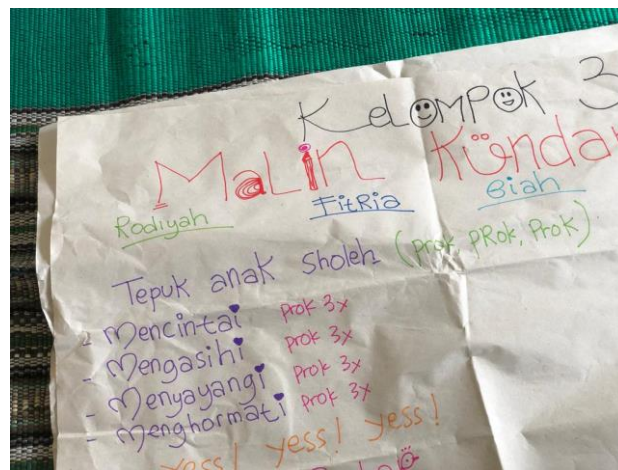 KeLOMPOK 3
MaLin Kündan
Rodiyah FitRia Biah
Tepuk anak Sholeh (prok, pRok, Prok)
- Mencintai prok 3x
- Mengasihi prok 3x
- Menyayangi prok 3x
- Menghormati prok 3x
yess! yess! yess!